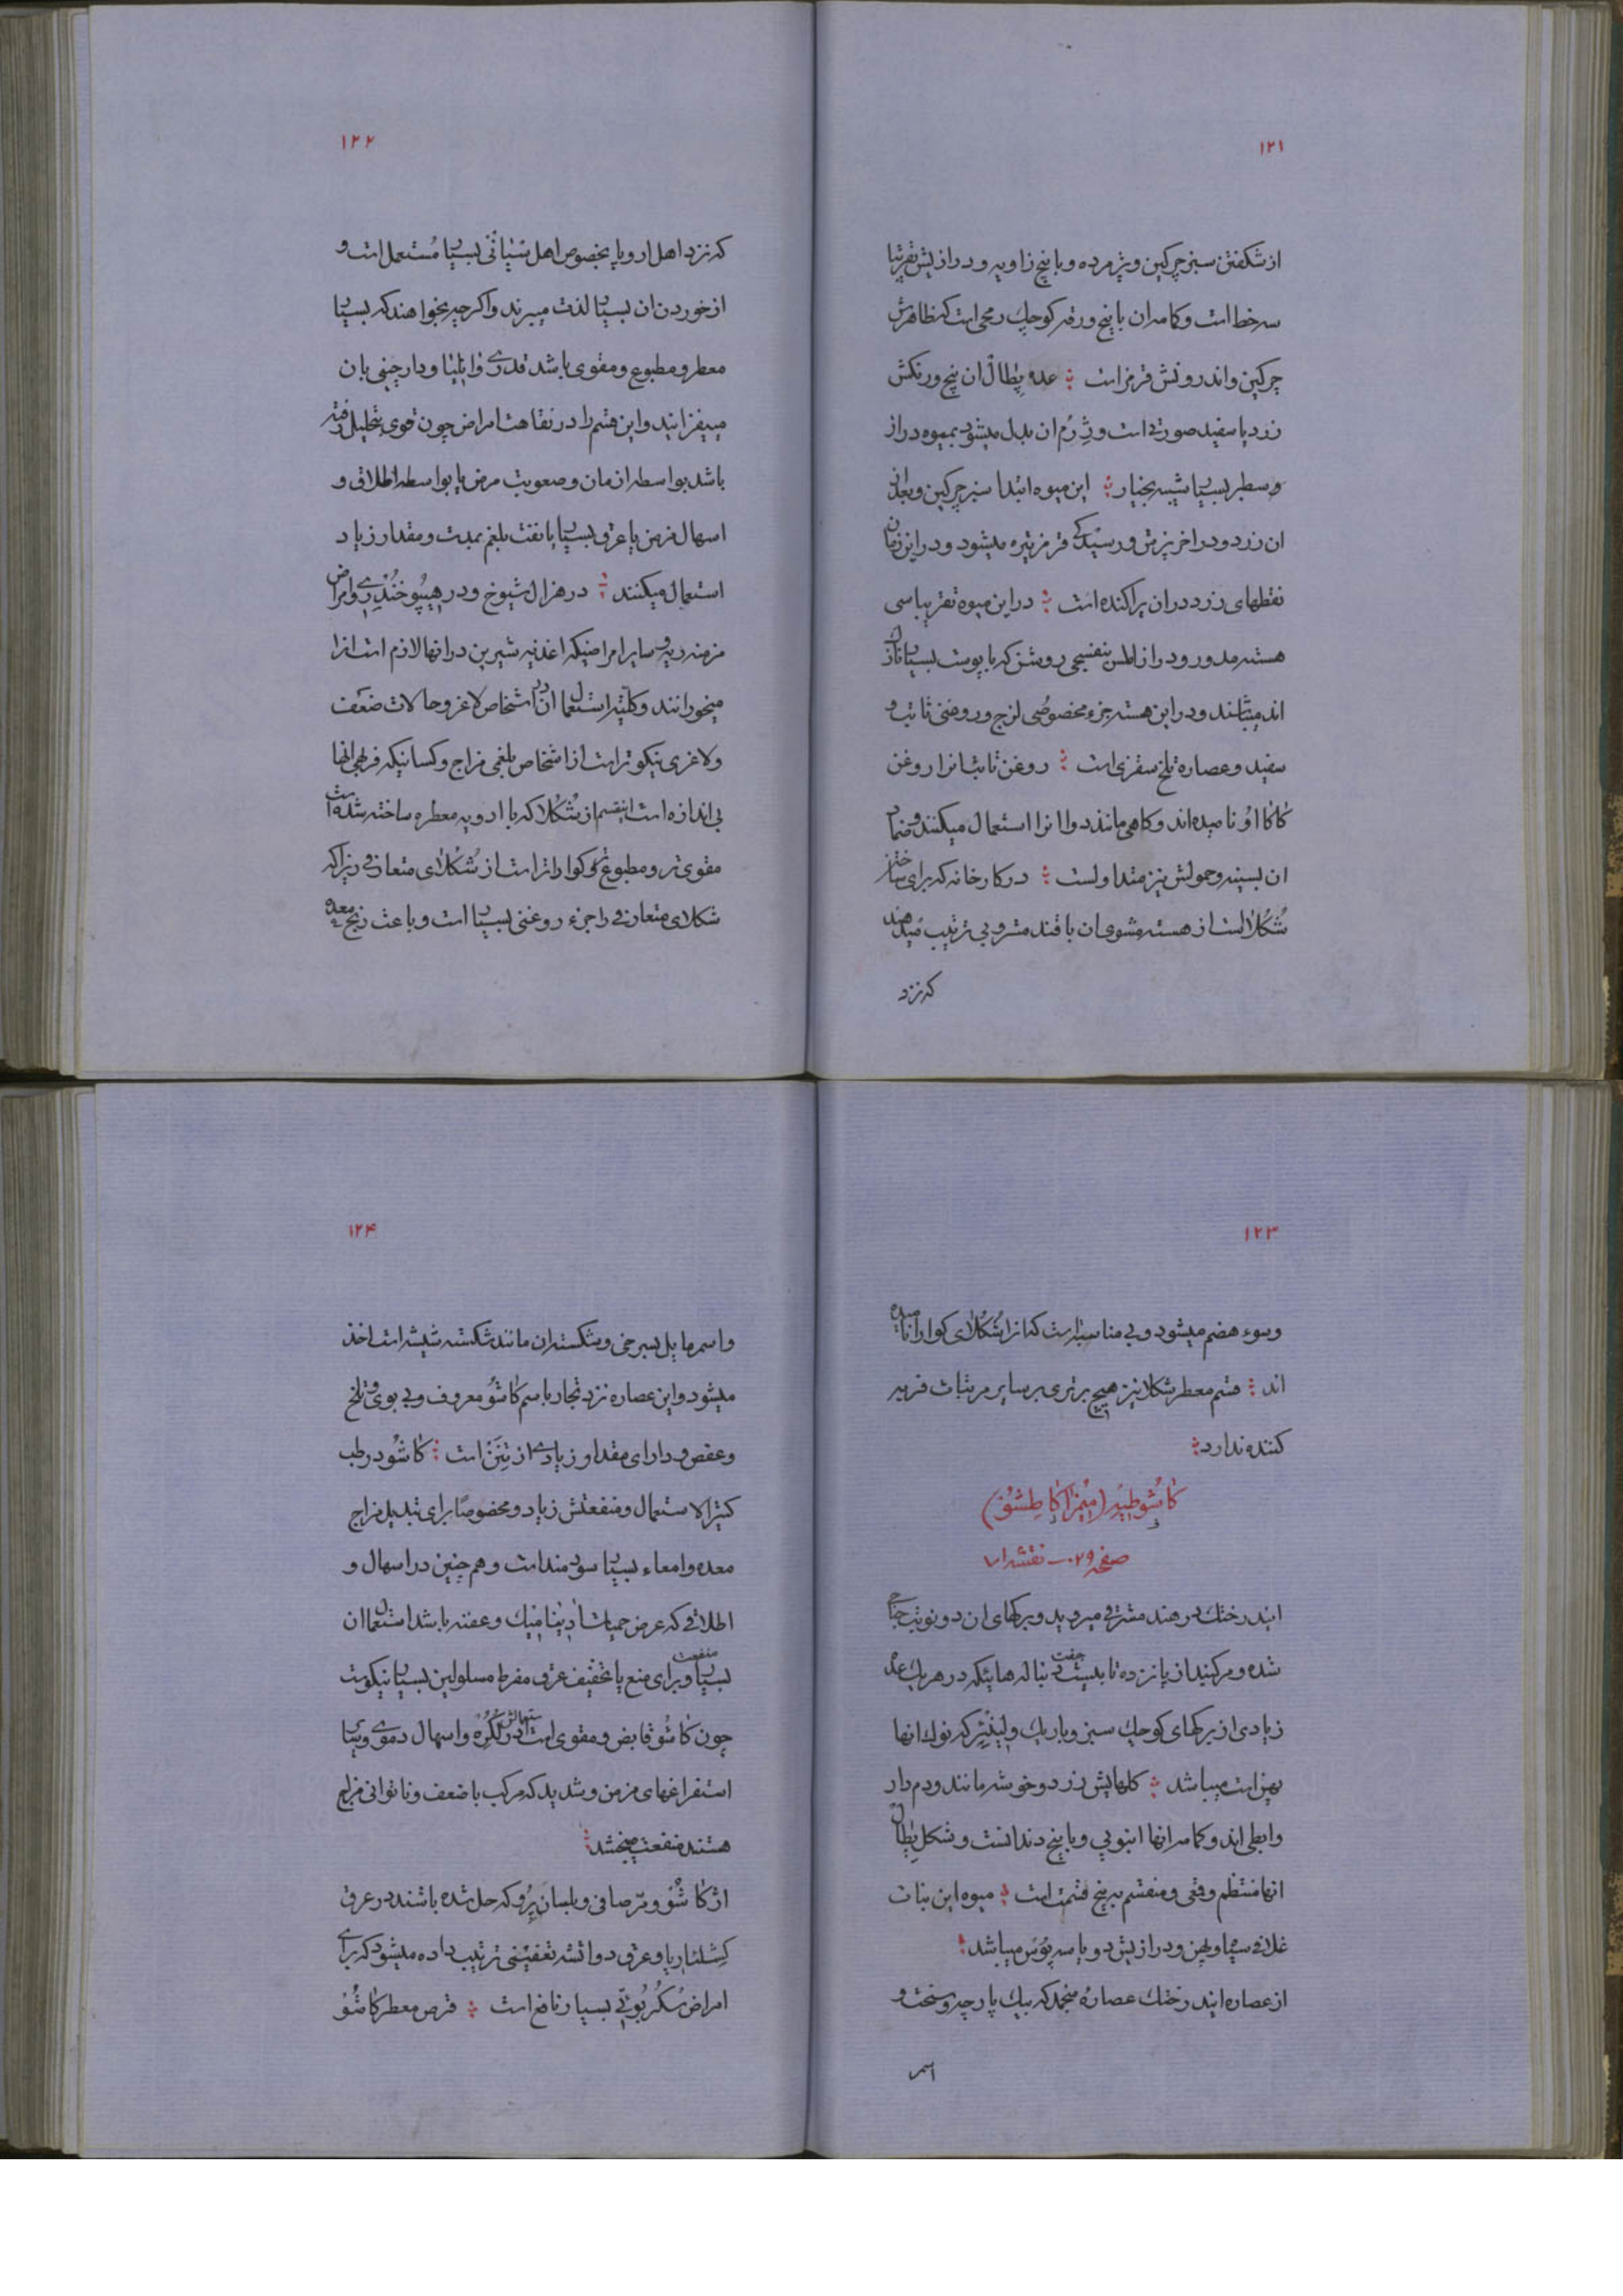 ١٢١
از شکفتن سبز چرکین و پژمرده و با پنج زاویه و درازیش تقریبا
سه خط است و کامه ان با پنج ورقه کوچك رمحی است که ظاهرش
چرکین و اندرونش قرمز است ؛ عده پطال ان پنج و رنکش
زرد یا سفید صورتی است و ژرم ان بدل میشود بمیوه دراز
و سطبر بسیار شبیه بخیار ؛ این میوه ابتدا سبز چرکین و بعد
ان زرد و در اخر پزش و رسیدکی قرمز تیره میشود و در این زمان
نقطهای زرد در ان پراکنده است ؛ در این میوه تقریبا سی
هسته مدور و دراز املس بنفسجی روشن که با پوست بسیار نازك
اند میباشند و در این هسته جزء مخصوصی لزج و روغنی ثابت و
سفید و عصاره تلخ سقزی است ؛ روغن ثابت انرا روغن
کاکااو نامیده اند و کاهی مانند دوا انرا استعمال میکنند و ضماد
ان بسینه و حمولش نیز متداولست ؛ در کارخانه که برای ساختن
شکلا است از هسته مشوی ان با قند مشروبی ترتیب میدهند
که نزد
١٢٢
که نزد اهل اروپا بخصوص اهل سپانی بسیار مستعمل است و
از خوردن ان بسیار لذت میبرند و اکر چه بخواهند که بسیار
معطر و مطبوع و مقوی باشد قدری وانیلیا و دارچینی بان
میفزایند و این قسم را در نقاهت امراض چون قوی بتحلیل رفته
باشد بواسطه ازمان و صعوبت مرض یا بواسطه اطلاق و
اسهال مزمن یا عرق بسیار یا نفث بلغم بمدت و مقدار زیاد
استعمال میکنند ؛ در هزال شیوخ و در هیپوخندری و امراض
مزمنه ریه و سایر امراضیکه اغذیه شیرین در انها لازم است انرا
میخورانند و کلیة استعمال ان در اشخاص لاغر و حالات ضعف
و لاغری نیکوتر است از اشخاص بلغمی مزاج و کسانیکه فربهی انها
بی اندازه است اینقسم از شکلا که با ادویه معطره ساخته شده است
مقوی تر و مطبوع تر و کواراتر است از شکلای متعارفی زیرا که
شکلای متعارفی را جزء روغنی بسیار است و باعث رنج معده
١٢٣
و سوء هضم میشود و بی مناسبتست که انرا شکلای کوارا نامیده
اند ؛ قسم معطر شکلا نیز هیچ برتری بر سایر مرتبات فربه
کننده ندارد ؛
کاشوطبیه (میمزا کاطشو)
صفحه ٠٢٩ نقشه ١٨
ایندرختك در هند مشرقی میروید و برکهای ان دو نوبت جناحی
شده و مرکبند از پانزده تا بیست جفت دنباله هائیکه در هر یك عده
زیادی از برکهای کوچك سبز و باریك و لینئر که نوك انها
پهن است میباشد ؛ کلهایش زرد و خوشه مانند و دم دار
و ابطی اند و کامه انها انبوبی و با پنج دندانست و شکل پطال
انها منتظم و قیفی و منقسم به پنج قسمت است ؛ میوه این نبات
غلافی سیاه و پهن و درازیش دو یا سه پوس میباشد ؛
از عصاره ایندرختك عصاره منجمد که بیك پارچه و سخت و
اسمر
١٢۴
و اسمر مایل بسرخی و شکسته ان مانند شکسته شیشه است اخذ
میشود و این عصاره نزد تجار باسم کاشو معروف و بی بوی و تلخ
و عفص و دارای مقدار زیادی از تنن است ؛ کاشو در طب
کثیر الاستعمال و منفعتش زیاد و مخصوصا برای تبدیل مزاج
معده و امعاء بسیار سودمند است و هم چنین در اسهال و
اطلاقی که عرض حمیات ادینامیك و عفنه باشد استعمال ان
بسیار منفعت و برای منع یا تخفیف عرق مفرط مسلولین بسیار نیکوست
چون کاشو قابض و مقوی است استعمالش در لکره و اسهال دموی و بسیار
استفراغهای مزمن و شدید که مرکب با ضعف و ناتوانی مزاج
هستند منفعت میبخشد ؛
از کاشو و مر صافی و بلسان پرو که حل شده باشند در عرق
کشلئاریا و عرق دواتشه تعفینی ترتیب داده میشود که برای
امراض سکربوتی بسیار نافع است ؛ قرص معطر کاشو